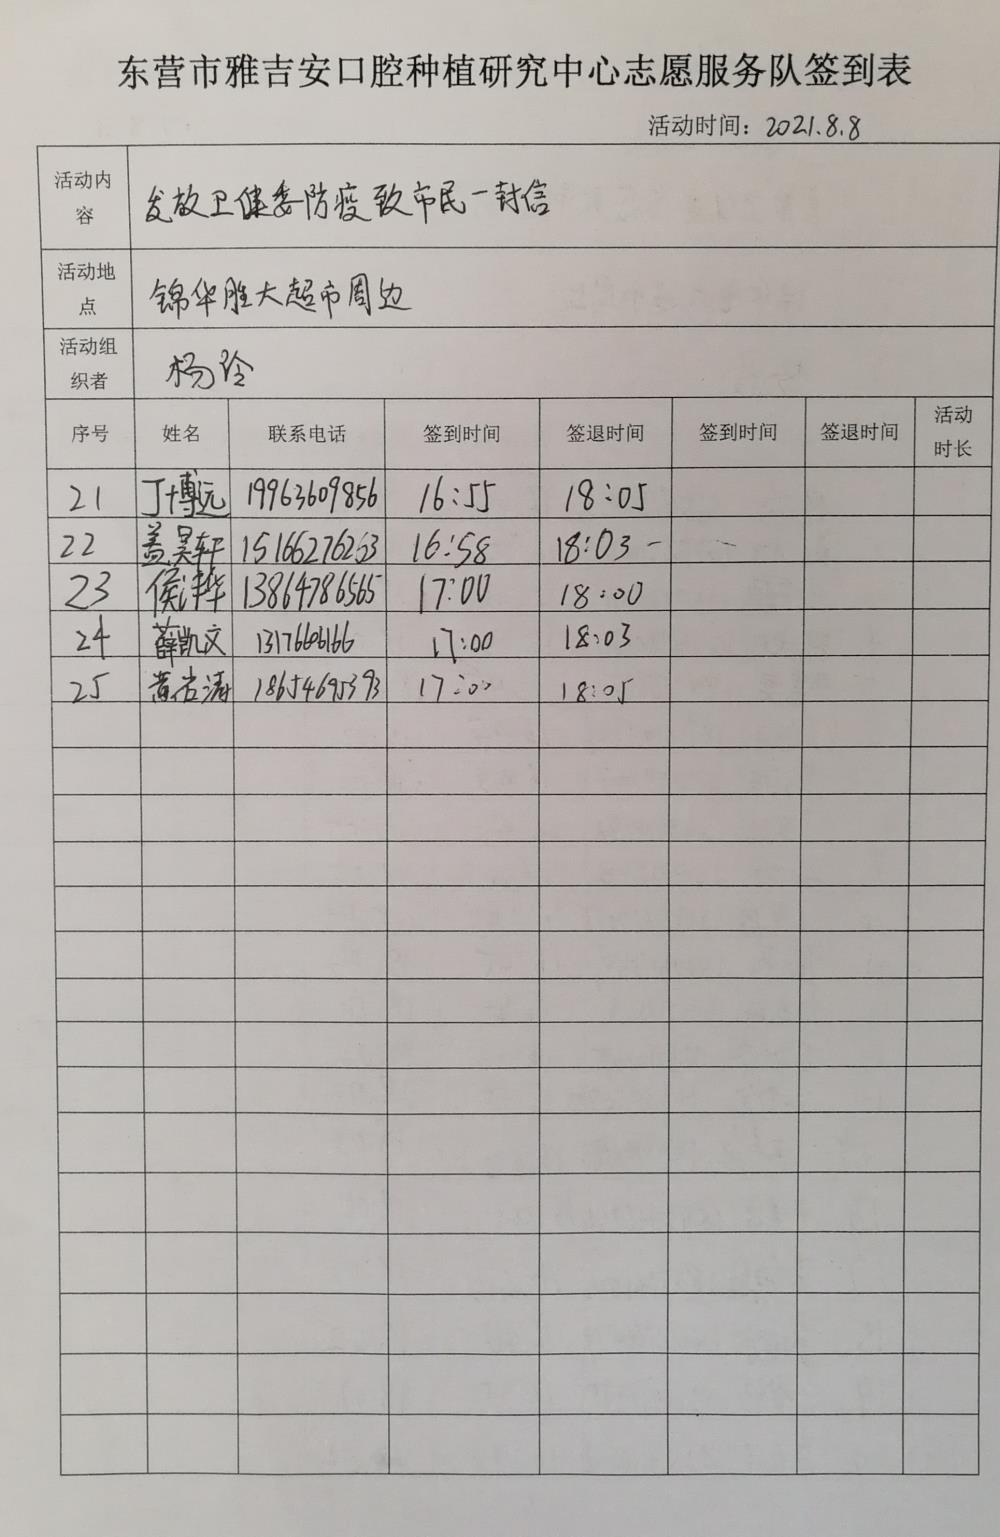 东营市雅吉安口腔种植研究中心志愿服务队签到表
活动时间：2021.8.8
活动内容 发放卫健委防疫致市民一封信
活动地点 锦华胜大超市周边
活动组织者 杨玲
序号 姓名 联系电话 签到时间 签退时间 签到时间 签退时间 活动时长
21 丁博远 19963609856 16:55 18:05
22 盖昊轩 15166276263 16:58 18:03
23 侯沣华 13864786565 17:00 18:00
24 薛凯文 13176606166 17:00 18:03
25 黄 涛 18654695393 17:00 18:05